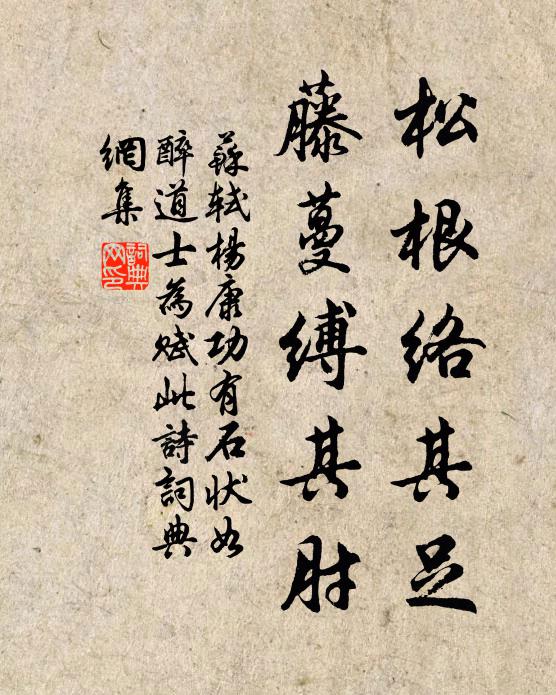 松根络其足
藤蔓缚其肘
蘇軾楊康功有石狀如
醉道士為賦此詩詞典
網集
詞典網印